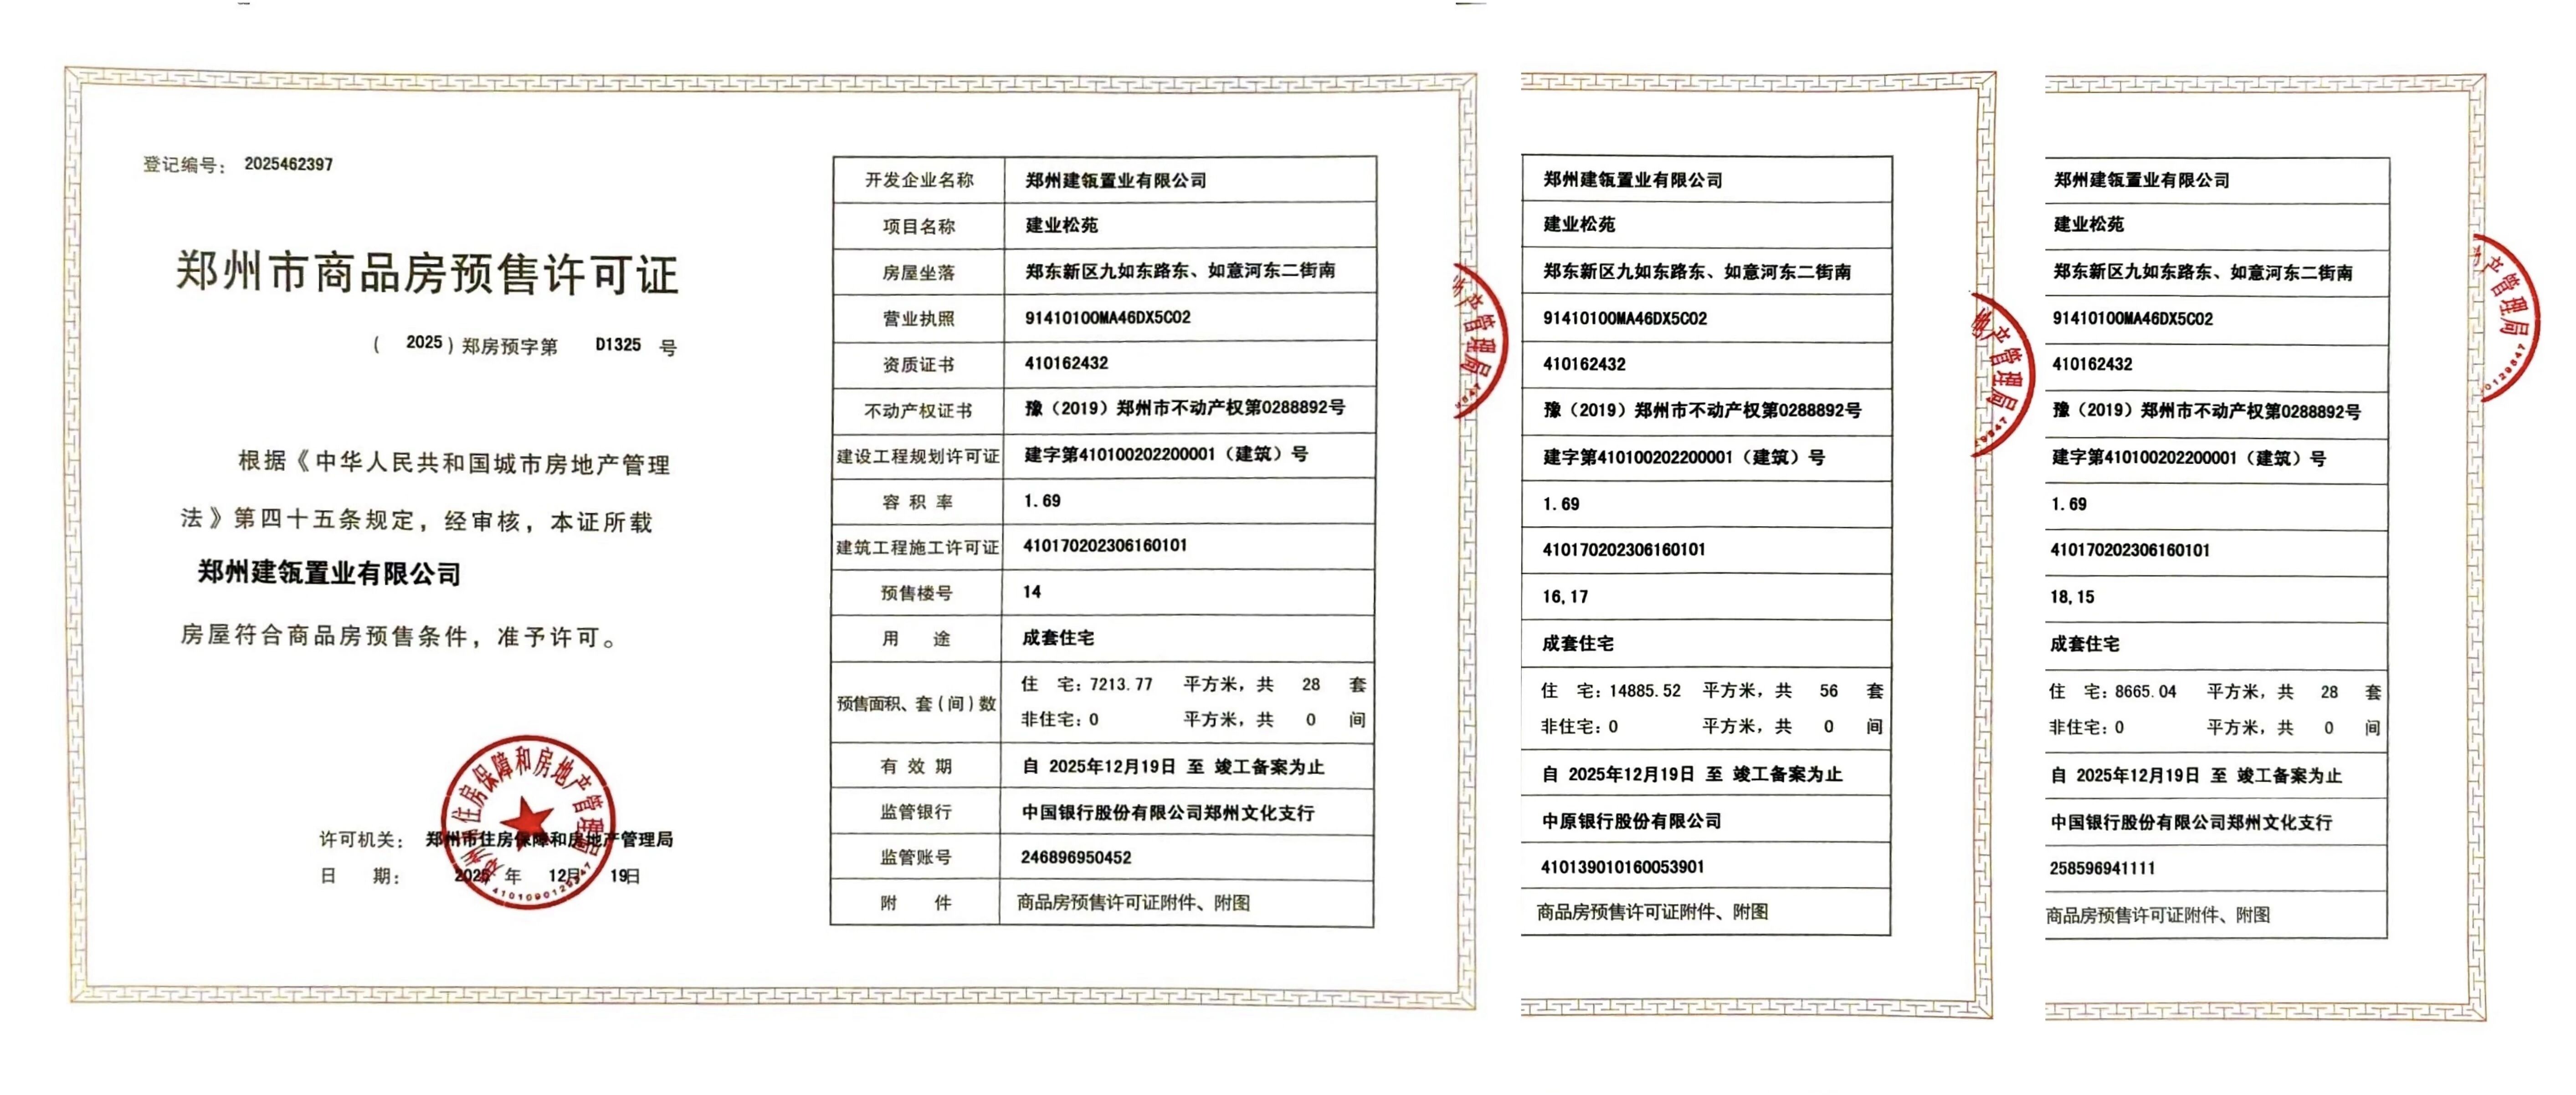 登记编号： 2025462397
郑州市商品房预售许可证
（ 2025 ）郑房预字第 D1325 号
根据《中华人民共和国城市房地产管理
法》第四十五条规定，经审核，本证所载
郑州建瓴置业有限公司
房屋符合商品房预售条件，准予许可。
许可机关： 郑州市住房保障和房地产管理局
日 期： 2025 年 12月 19日
郑州市住房保障和房地产管理局
开发企业名称 郑州建瓴置业有限公司
项目名称 建业松苑
房屋坐落 郑东新区九如东路东、如意河东二街南
营业执照 91410100MA46DX5C02
资质证书 410162432
不动产权证书 豫（2019）郑州市不动产权第0288892号
建设工程规划许可证 建字第410100202200001（建筑）号
容 积 率 1.69
建筑工程施工许可证 410170202306160101
预售楼号 14
用 途 成套住宅
预售面积、套(间)数 住 宅：7213.77 平方米，共 28 套
非住宅：0 平方米，共 0 间
有 效 期 自 2025年12月19日 至 竣工备案为止
监管银行 中国银行股份有限公司郑州文化支行
监管账号 246896950452
附 件 商品房预售许可证附件、附图
产管理局
郑州建瓴置业有限公司
建业松苑
郑东新区九如东路东、如意河东二街南
91410100MA46DX5C02
410162432
豫（2019）郑州市不动产权第0288892号
建字第410100202200001（建筑）号
1.69
410170202306160101
16,17
成套住宅
住 宅：14885.52 平方米，共 56 套
非住宅：0 平方米，共 0 间
自 2025年12月19日 至 竣工备案为止
中原银行股份有限公司
410139010160053901
商品房预售许可证附件、附图
地产管理局
郑州建瓴置业有限公司
建业松苑
郑东新区九如东路东、如意河东二街南
91410100MA46DX5C02
410162432
豫（2019）郑州市不动产权第0288892号
建字第410100202200001（建筑）号
1.69
410170202306160101
18,15
成套住宅
住 宅：8665.04 平方米，共 28 套
非住宅：0 平方米，共 0 间
自 2025年12月19日 至 竣工备案为止
中国银行股份有限公司郑州文化支行
258596941111
商品房预售许可证附件、附图
产管理局